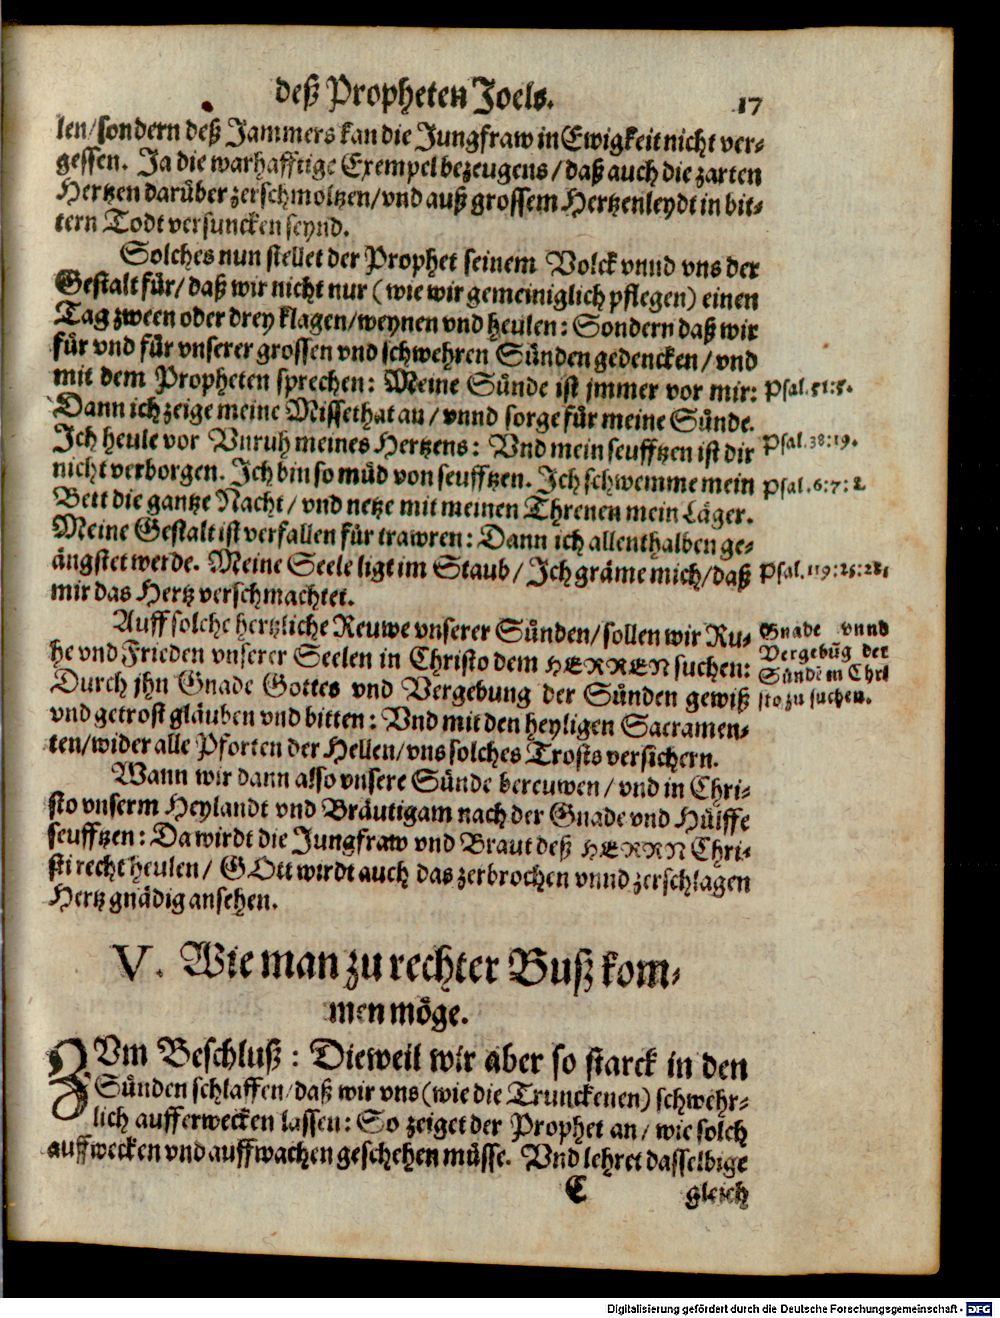 deß Propheten Joels. 17
len/sondern deß Jammers kan die Jungfraw in Ewigkeit nicht ver-
gessen. Ja die warhafftige Exempel bezeugens/daß auch die zarten
Hertzen darüber zerschmoltzen/vnd auß grossem Hertzenleydt in bit-
tern Todt versuncken seynd.
Solches nun stellet der Prophet seinem Volck vnnd vns der
Gestalt für/daß wir nicht nur (wie wir gemeiniglich pflegen) einen
Tag zween oder drey klagen/weynen vnd heulen: Sondern daß wir
für vnd für vnserer grossen vnd schwehren Sünden gedencken/vnd
mit dem Propheten sprechen: Meine Sünde ist jmmer vor mir: Psal. 51:5.
Dann ich zeige meine Missethat an/vnnd sorge für meine Sünde.
Ich heule vor Vnruh meines Hertzens: Vnd mein seufftzen ist dir Psal. 38:19.
nicht verborgen. Ich bin so müd von seufftzen. Ich schwemme mein Psal. 6:7:8.
Bett die gantze Nacht/vnd netze mit meinen Threnen mein Läger.
Meine Gestalt ist verfallen für trawren: Dann ich allenthalben ge-
ängstet werde. Meine Seele ligt im Staub/Ich gräme mich/daß Psal. 119:25:28.
mir das Hertz verschmachtet.
Auff solche hertzliche Reuwe vnserer Sünden/sollen wir Ru- Gnade vnnd
he vnd Frieden vnserer Seelen in Christo dem HERREN suchen: Vergebūg der
Durch jhn Gnade Gottes vnd Vergebung der Sünden gewiß Sündē in Chri
vnd getrost gläuben vnd bitten: Vnd mit den heyligen Sacramen- sto zu suchen.
ten/wider alle Pforten der Hellen/vns solches Trosts versichern.
Wann wir dann also vnsere Sünde bereuwen/vnd in Chri-
sto vnserm Heylandt vnd Bräutigam nach der Gnade vnd Hülffe
seufftzen: Da wirdt die Jungfraw vnd Braut deß HERRN Chri-
sti recht heulen/GOtt wirdt auch das zerbrochen vnnd zerschlagen
Hertz gnädig ansehen.
V. Wie man zu rechter Buß kom-
men möge.
ZVm Beschluß: Dieweil wir aber so starck in den
Sünden schlaffen/daß wir vns (wie die Trunckenen) schwehr-
lich aufferwecken lassen: So zeiget der Prophet an/wie solch
auffwecken vnd auffwachen geschehen müsse. Vnd lehret dasselbige
C gleich
Digitalisierung gefördert durch die Deutsche Forschungsgemeinschaft - DFG